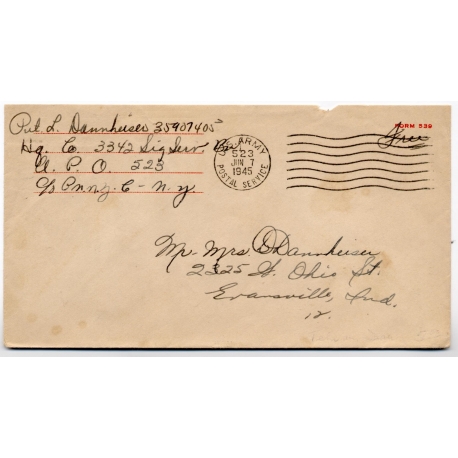 Pvt. L. Dannheiser 35907405
Hq. Co. 3342 Sig Serv Bn
A. P. O. 523
c/o Pmng. C - N. Y
U.S. ARMY
523
JUN 7
1945
POSTAL SERVICE
FORM 539
Free
Mr. Mrs. D Dannheiser
2325 W. Ohio St.
Evansville, Ind.
12.